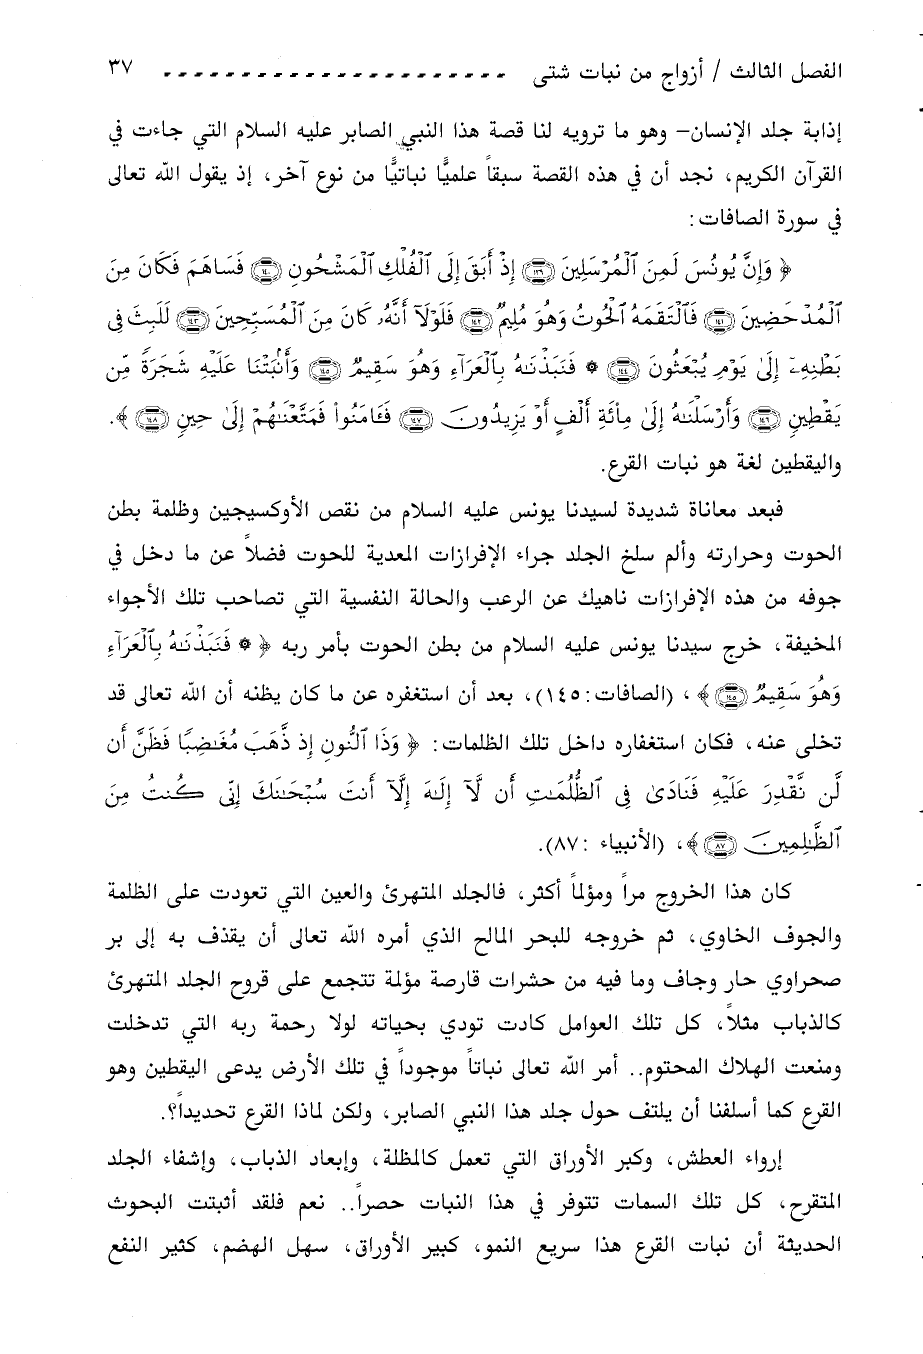 الفصل الثالث / أزواج من نبات شتى ٣٧
إذابة جلد الإنسان– وهو ما ترويه لنا قصة هذا النبي الصابر عليه السلام التي جاءت في
القرآن الكريم، نجد أن في هذه القصة سبقاً علميًّا نباتيًّا من نوع آخر، إذ يقول الله تعالى
في سورة الصافات:
﴿ وَإِنَّ يُونُسَ لَمِنَ ٱلْمُرْسَلِينَ ۝١٣٩ إِذْ أَبَقَ إِلَى ٱلْفُلْكِ ٱلْمَشْحُونِ ۝١٤٠ فَسَاهَمَ فَكَانَ مِنَ
ٱلْمُدْحَضِينَ ۝١٤١ فَٱلْتَقَمَهُ ٱلْحُوتُ وَهُوَ مُلِيمٌ ۝١٤٢ فَلَوْلَآ أَنَّهُۥ كَانَ مِنَ ٱلْمُسَبِّحِينَ ۝١٤٣ لَلَبِثَ فِى
بَطْنِهِۦٓ إِلَىٰ يَوْمِ يُبْعَثُونَ ۝١٤٤ ۞ فَنَبَذْنَـٰهُ بِٱلْعَرَآءِ وَهُوَ سَقِيمٌ ۝١٤٥ وَأَنۢبَتْنَا عَلَيْهِ شَجَرَةً مِّن
يَقْطِينٍ ۝١٤٦ وَأَرْسَلْنَـٰهُ إِلَىٰ مِا۟ئَةِ أَلْفٍ أَوْ يَزِيدُونَ ۝١٤٧ فَـَٔامَنُوا۟ فَمَتَّعْنَـٰهُمْ إِلَىٰ حِينٍ ۝١٤٨ ﴾.
واليقطين لغة هو نبات القرع.
فبعد معاناة شديدة لسيدنا يونس عليه السلام من نقص الأوكسيجين وظلمة بطن
الحوت وحرارته وألم سلخ الجلد جراء الإفرازات المعدية للحوت فضلاً عن ما دخل في
جوفه من هذه الإفرازات ناهيك عن الرعب والحالة النفسية التي تصاحب تلك الأجواء
المخيفة، خرج سيدنا يونس عليه السلام من بطن الحوت بأمر ربه ﴿ ۞ فَنَبَذْنَـٰهُ بِٱلْعَرَآءِ
وَهُوَ سَقِيمٌ ۝١٤٥ ﴾، (الصافات:١٤٥)، بعد أن استغفره عن ما كان يظنه أن الله تعالى قد
تخلى عنه، فكان استغفاره داخل تلك الظلمات: ﴿ وَذَا ٱلنُّونِ إِذ ذَّهَبَ مُغَـٰضِبًا فَظَنَّ أَن
لَّن نَّقْدِرَ عَلَيْهِ فَنَادَىٰ فِى ٱلظُّلُمَـٰتِ أَن لَّآ إِلَـٰهَ إِلَّآ أَنتَ سُبْحَـٰنَكَ إِنِّى كُنتُ مِنَ
ٱلظَّـٰلِمِينَ ۝٨٧ ﴾، (الأنبياء :٨٧).
كان هذا الخروج مراً ومؤلماً أكثر، فالجلد المتهرئ والعين التي تعودت على الظلمة
والجوف الخاوي، ثم خروجه للبحر المالح الذي أمره الله تعالى أن يقذف به إلى بر
صحراوي حار وجاف وما فيه من حشرات قارصة مؤلمة تتجمع على قروح الجلد المتهرئ
كالذباب مثلاً، كل تلك العوامل كادت تودي بحياته لولا رحمة ربه التي تدخلت
ومنعت الهلاك المحتوم.. أمر الله تعالى نباتاً موجوداً في تلك الأرض يدعى اليقطين وهو
القرع كما أسلفنا أن يلتف حول جلد هذا النبي الصابر، ولكن لماذا القرع تحديداً؟.
إرواء العطش، وكبر الأوراق التي تعمل كالمظلة، وإبعاد الذباب، وإشفاء الجلد
المتقرح، كل تلك السمات تتوفر في هذا النبات حصراً.. نعم فلقد أثبتت البحوث
الحديثة أن نبات القرع هذا سريع النمو، كبير الأوراق، سهل الهضم، كثير النفع